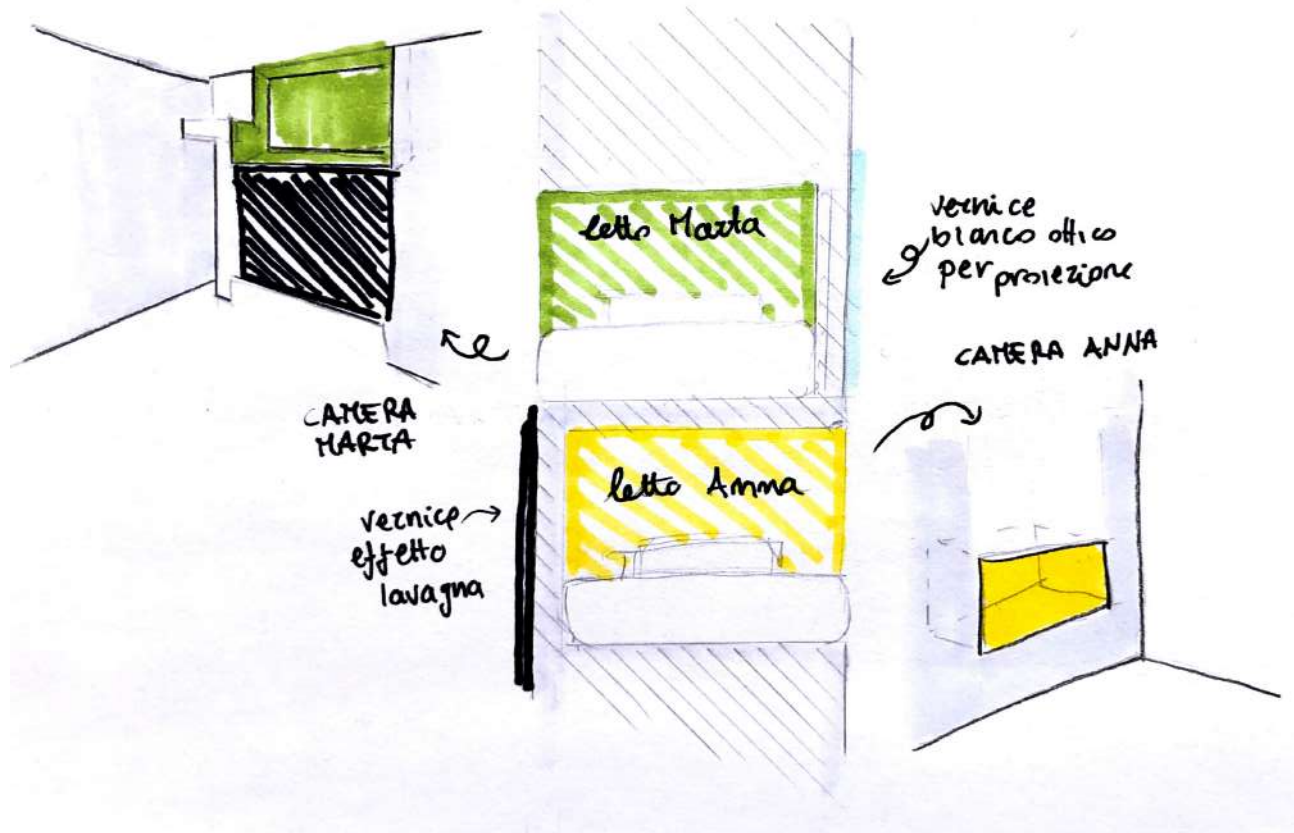 letto Marta
vernice
bianco ottico
per proiezione
CAMERA ANNA
CAMERA
MARTA
letto Anna
vernice
effetto
lavagna